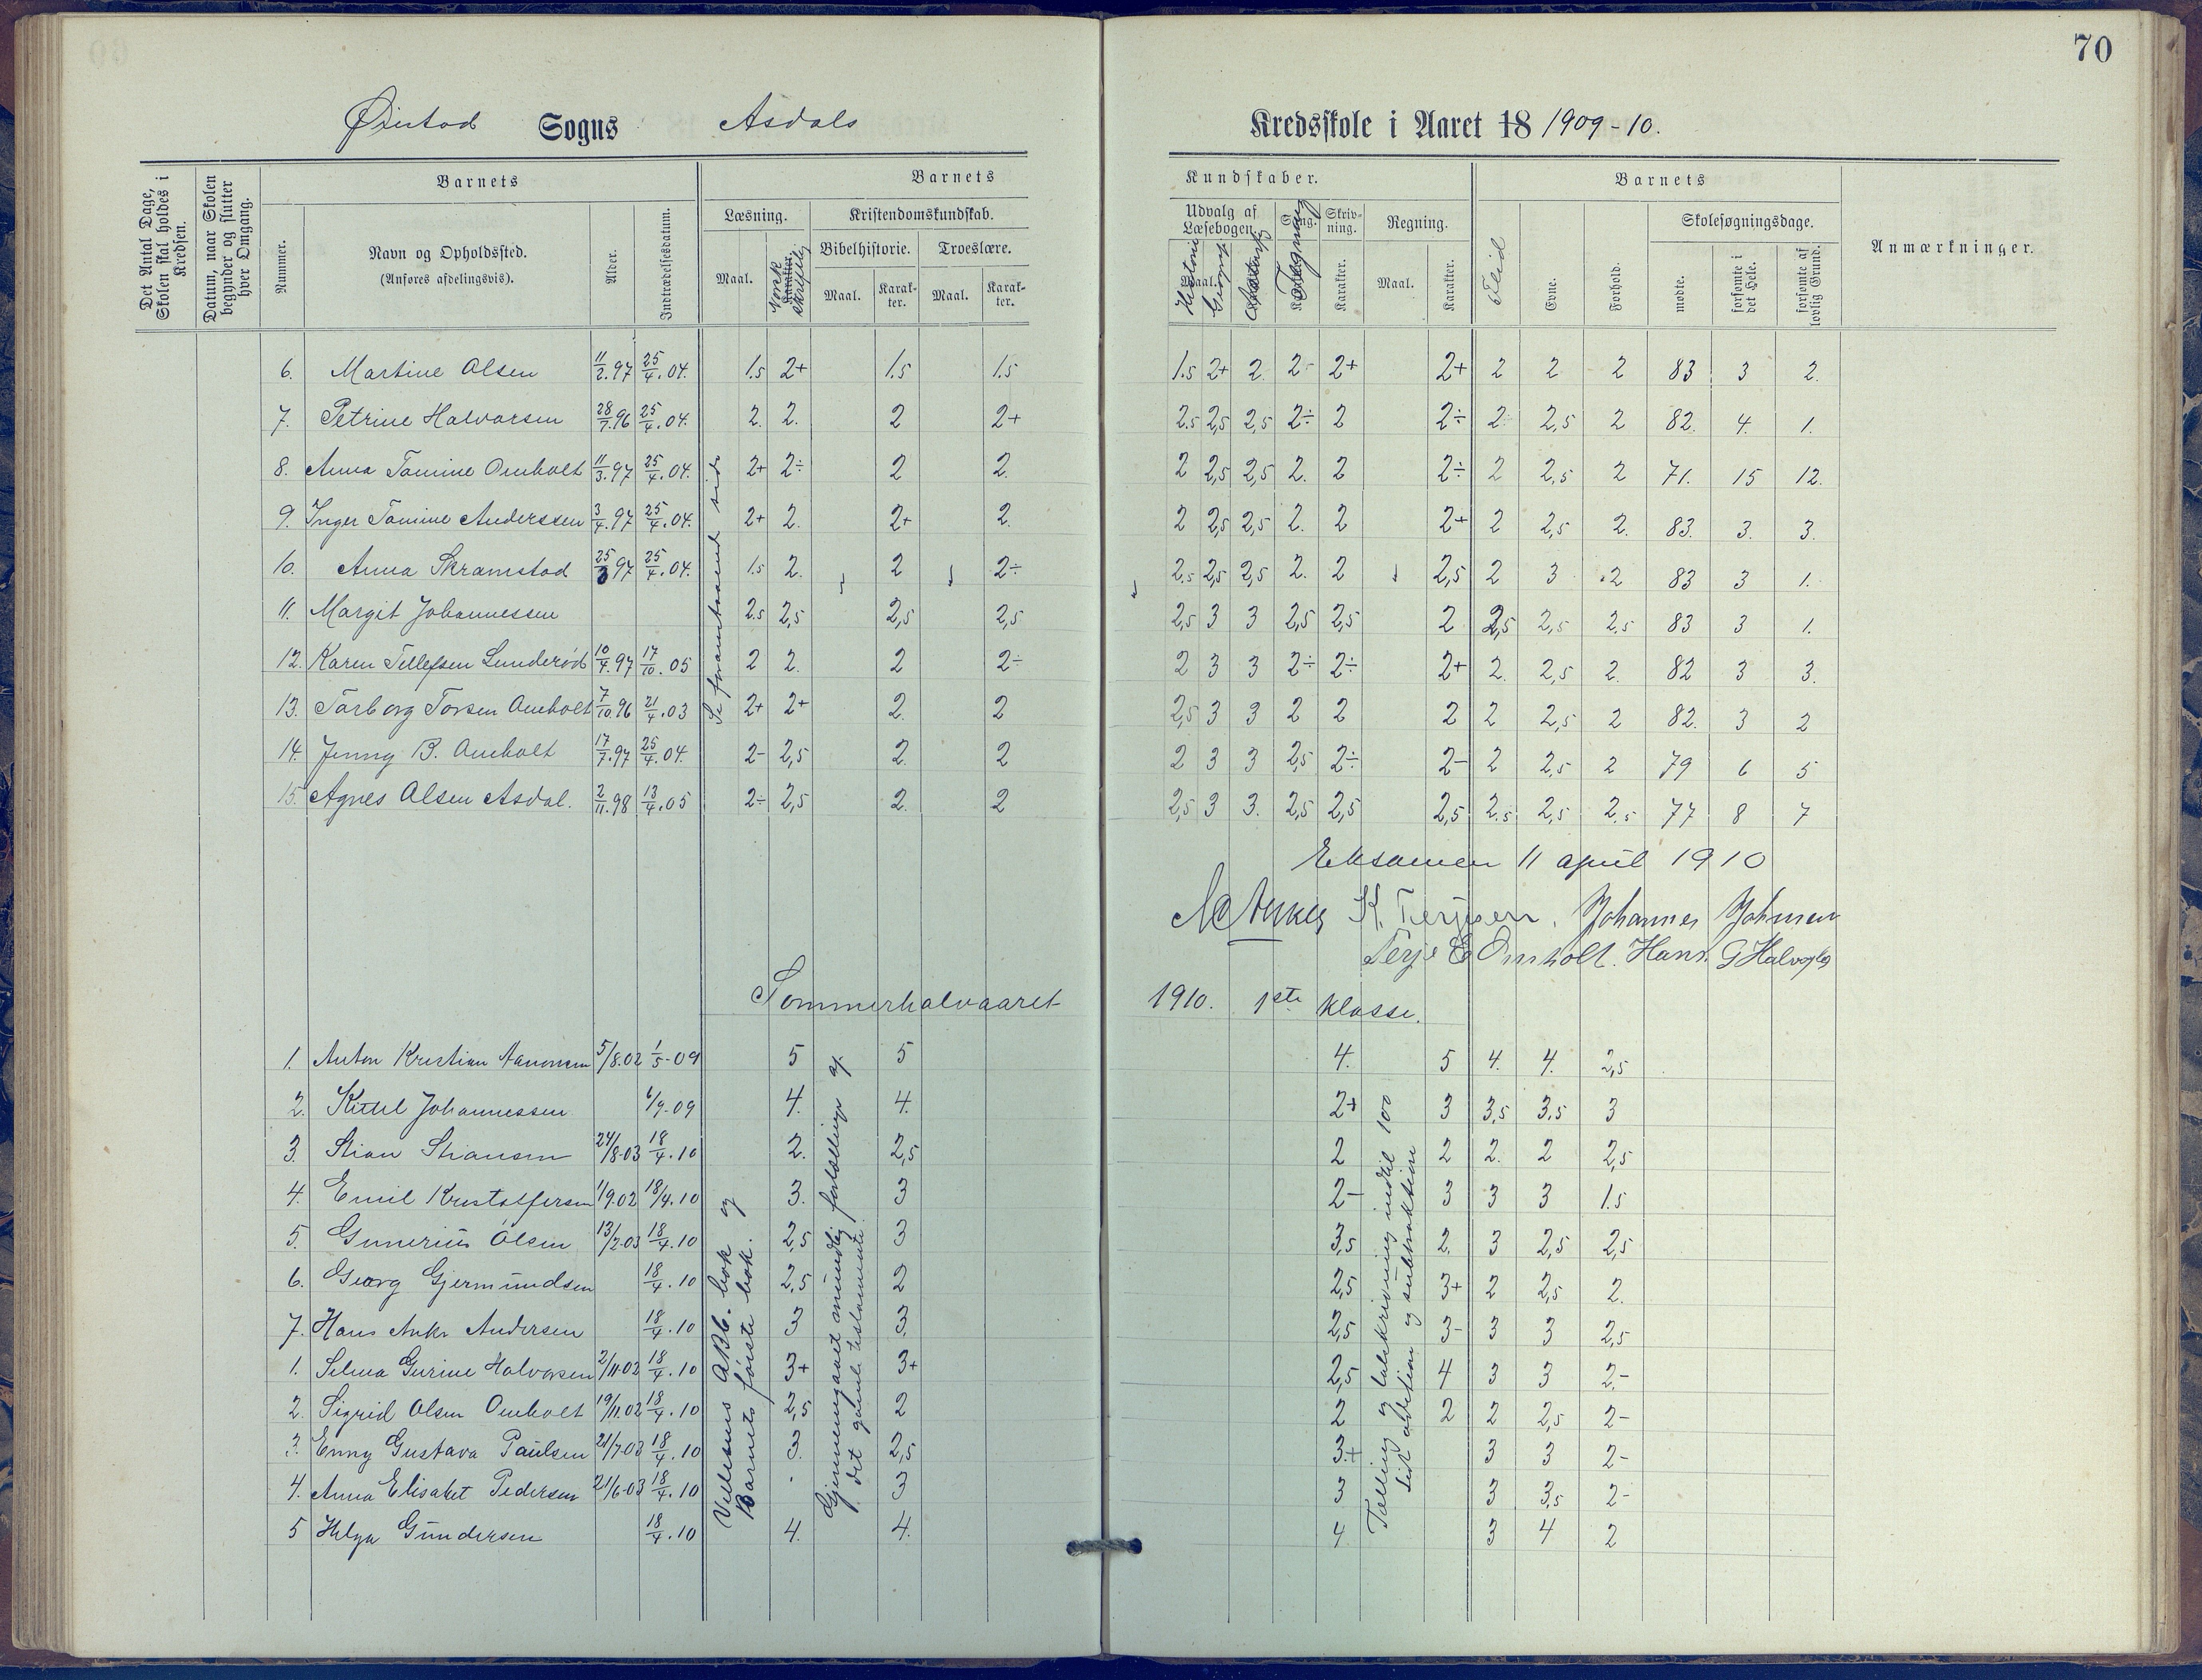 70
Øiestad Sogns Asdals Kredsskole i Aaret 18 1909-10.
Det Antal Dage, Skolen skal holdes i Kredsen.
Datum, naar Skolen begynder og slutter hver Omgang.
Nummer.
Barnets
Navn og Opholdssted.
(Anføres afdelingsvis).
Alder.
Indtrædelsesdatum.
Barnets Kundskaber.
Læsning.
Maal.
Karakter.
Norsk skriftlig
Kristendomskundskab.
Bibelhistorie.
Maal.
Karakter.
Troeslære.
Maal.
Karakter.
Udvalg af Læsebogen.
Historie
Geografi
Sang.
Tegning
Skrivning.
Karakter.
Regning.
Maal.
Karakter.
Barnets
Flid
Evne.
Forhold.
Skolesøgningsdage.
mødte.
forsømte i det Hele.
forsømte af lovlig Grund.
Anmærkninger.
6. Martine Olsen 11/2.97 25/4.04. 1.5 2+ 1.5 1.5 1.5 2+ 2 2- 2+ 2+ 2 2 2 83 3 2.
7. Petrine Halvorsen 28/7.96 25/4.04. 2. 2. 2 2+ 2.5 2,5 2,5 2÷ 2 2÷ 2 2,5 2 82. 4. 1.
8. Anna Tomine Omholt 11/3.97 25/4.04. 2+ 2÷ 2 2. 2 2,5 2,5 2. 2 2÷ 2 2,5 2 71. 15 12.
9. Inger Tomine Anderssen 3/4.97 25/4.04. 2+ 2. 2+ 2. 2 2,5 2,5 2. 2 2+ 2 2,5 2. 83. 3. 3.
10. Anna Skramstad 25/3 97 25/4.04. 1.5 2. 2 2÷ 2.5 2,5 2,5 2. 2 2,5 2 3 2 83 3 1.
11. Margit Johannessen 2.5 2,5 2,5 2,5 2,5 3 3 2,5 2,5 2 2,5 2,5 2.5 83 3 1.
12. Karen Tellefsen Lunderød 10/4.97 17/10.05 2 2. 2 2÷ 2 3 3 2÷ 2÷ 2+ 2. 2,5 2. 82 3 3.
13. Torborg Torsen Omholt 7/10.96 21/4.03 2+ 2+ 2. 2 2,5 3 3 2 2 2 2 2,5 2 82. 3 2
14. Jenny B. Omholt 17/7.97 25/4.04. 2- 2,5 2. 2 2 3 3 2,5 2÷ 2- 2 2,5 2 79 6 5
15. Agnes Olsen Asdal. 2/11.98 13/4.05 2÷ 2,5 2. 2 2,5 3 3. 2,5 2,5 2,5 2.5 2,5 2.5 77 8 7
Se foranstaaende side
Eksamen 11 april 1910
K. Terjesen. Johannes Johnsen
Terje E Omholt. Hans G Halvorsen
Sommerhalvaaret 1910. 1ste klasse.
1. Anton Kristian Aanonsen 5/8.02 1/5-09 5 5 4. 5 4. 4. 2,5
2. Kittel Johannessen 6/9.09 4. 4. 2+ 3 3,5 3,5 3
3. Stian Stiansen 24/8-03 18/4.10 2. 2,5 2 2 2. 2 2,5
4. Emil Kristoffersen 1/9.02 18/4.10 3. 3 2- 3 3 3 1.5
5. Gunerius Olsen 13/2-03 18/4.10 2,5 3 3,5 2. 3 2,5 2,5
6. Georg Gjermundsen 18/4.10 2,5 2 2,5 3+ 2 2,5 2.
7. Hans Anker Andersen 18/4.10 3 3 2,5 3- 3 3 2,5
1. Selma Gurine Halvorsen 2/11.02 18/4.10 3+ 3+ 2,5 4 3 3 2-
2. Sigrid Olsen Omholt 19/11.02 18/4.10 2,5 2 2 2 2 2,5 2-
3. Enny Gustava Paulsen 21/7-03 18/4.10 3. 2,5 3+ 3 3 2-
4. Anna Elisabet Pedersen 21/6-03 18/4.10 3 3 3 3,5 2-
5 Helga Gundersen 18/4.10 4. 4. 4 3 4 2
ABC. bok og
Barnets første bok.
Gjennemgaaet mundlig fortællinger af
det gamle testamente.
Tælling og talskrivning indtil 100
Lidt addetion og subtraktion